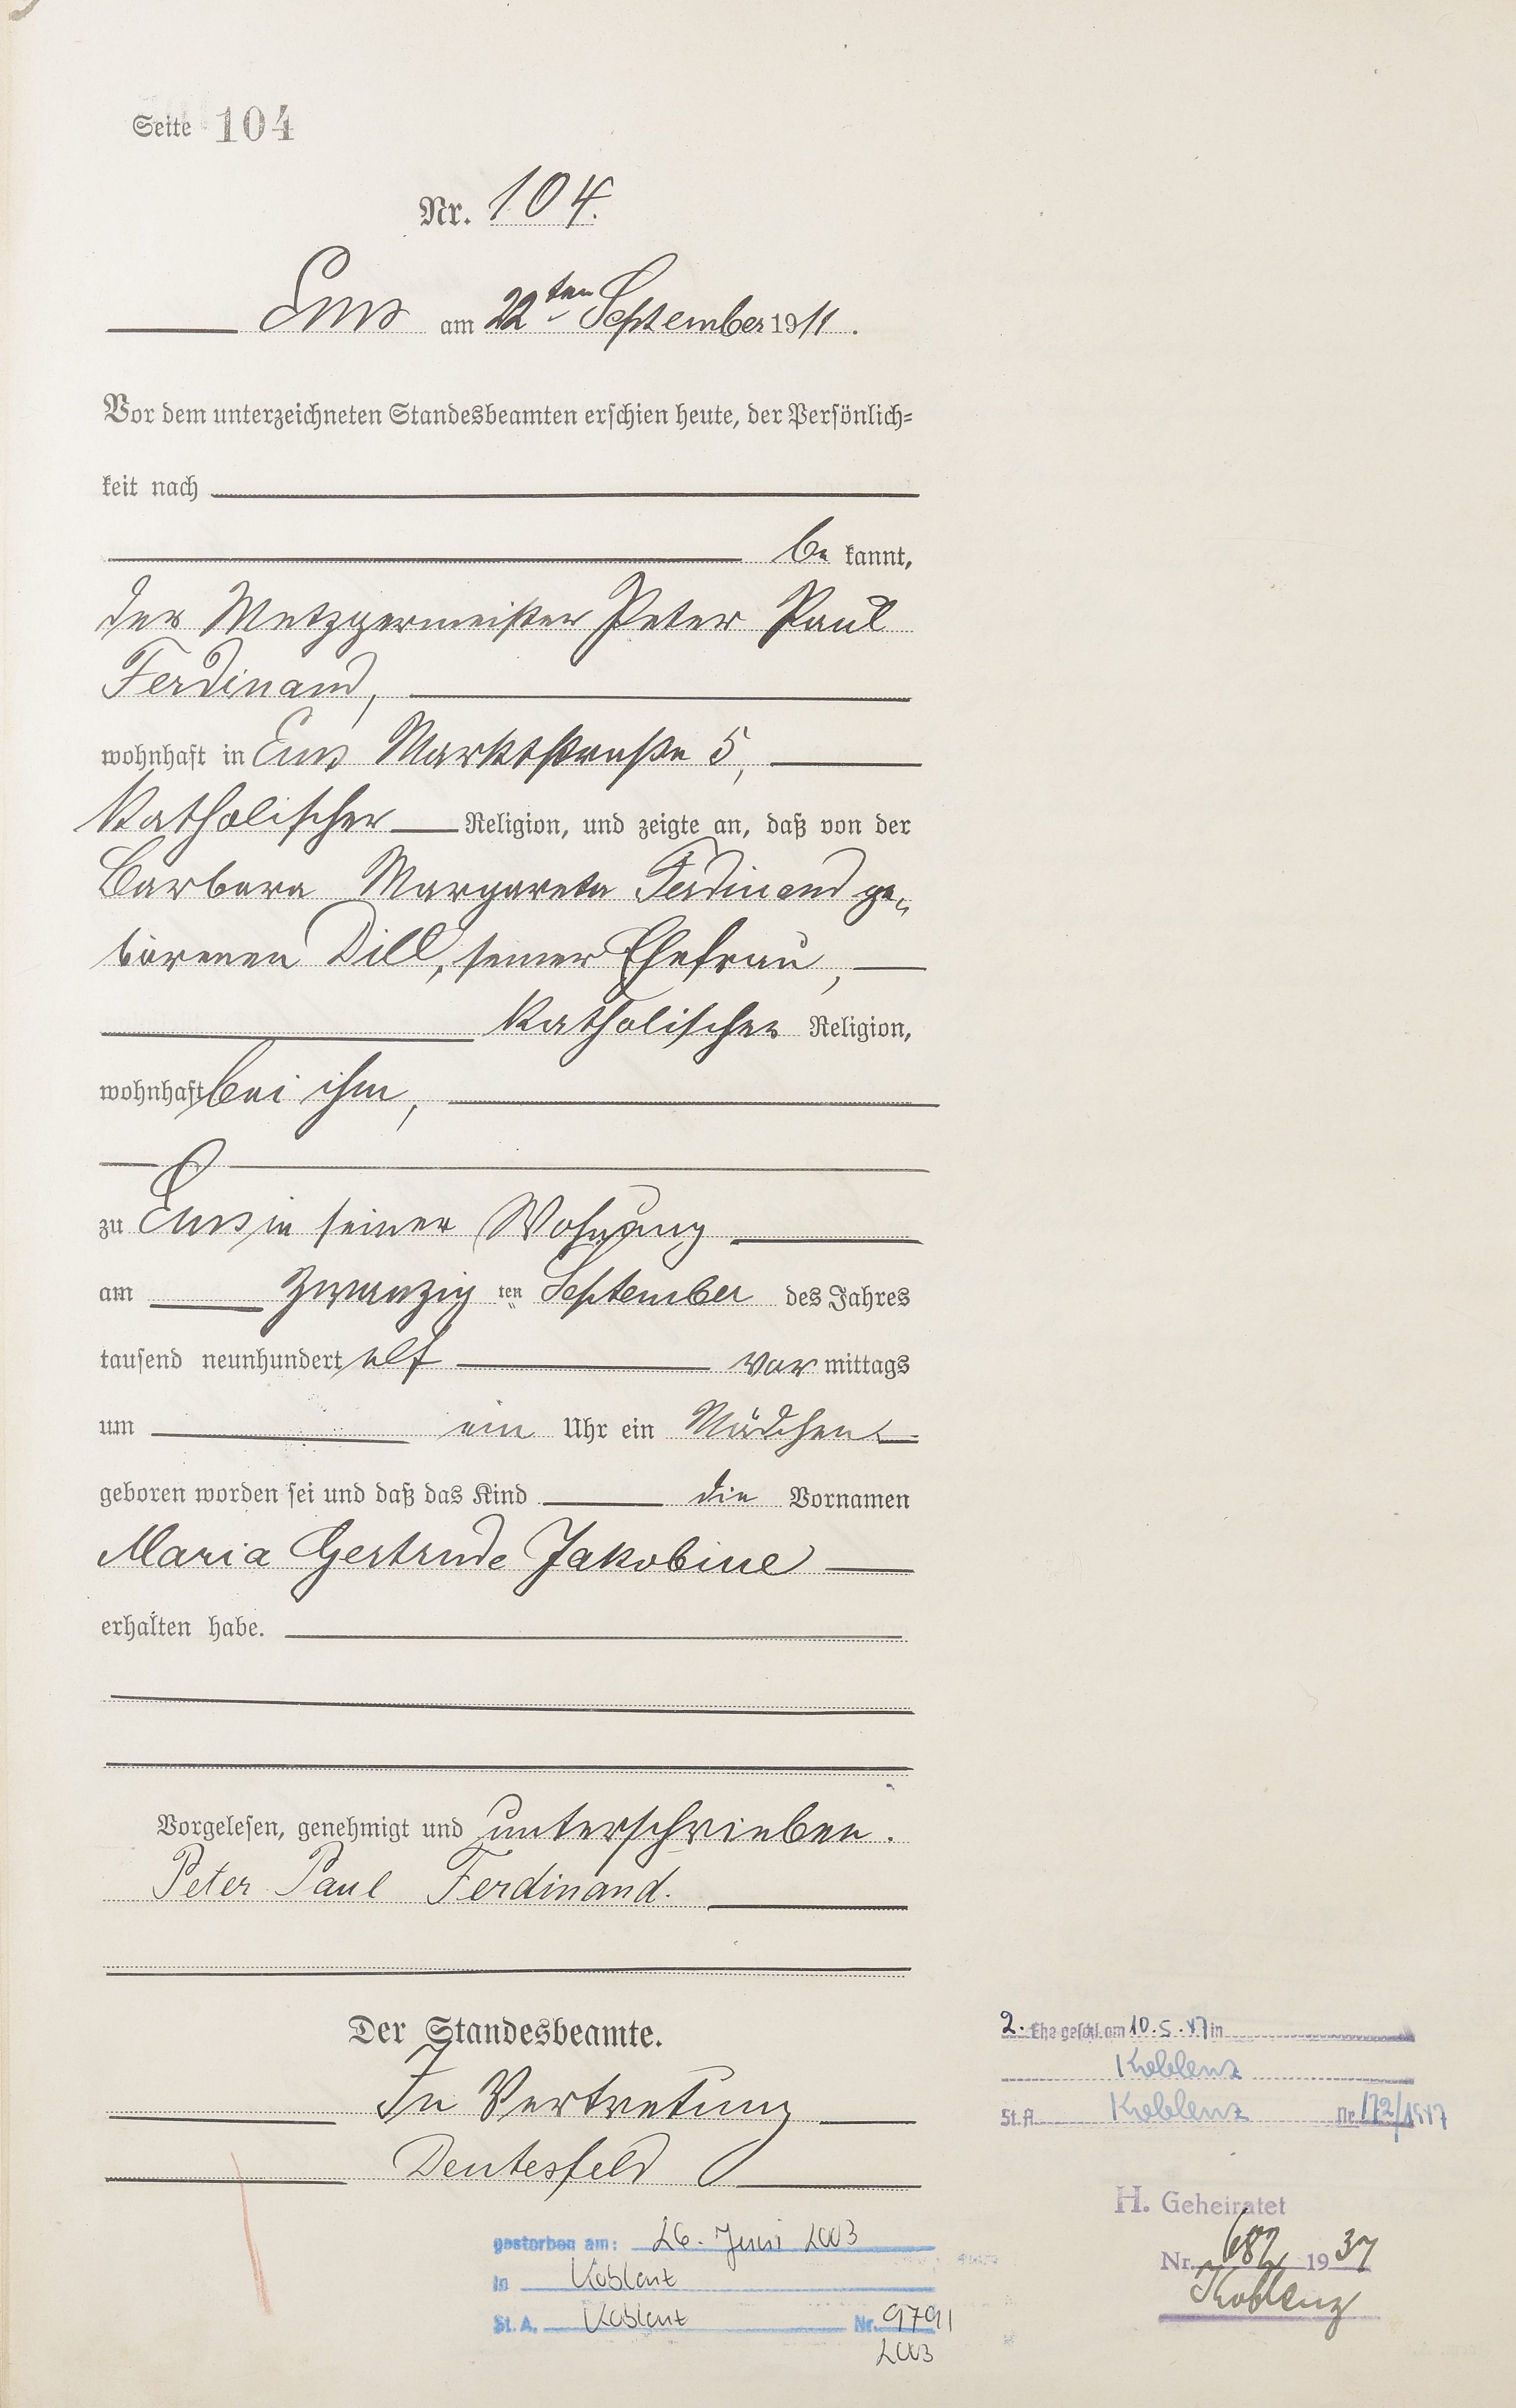 Seite 104
Nr. 104.
Ems am 22ten September 1911.
Vor dem unterzeichneten Standesbeamten erschien heute, der Persönlich=
keit nach
be kannt,
der Metzgermeister Peter Paul
Ferdinand,
wohnhaft in Ems Marktstraße 5,
katholischer Religion, und zeigte an, daß von der
Barbara Margareta Ferdinand ge=
borenen Dill, seiner Ehefrau,
katholischer Religion,
wohnhaft bei ihm,
zu Ems in seiner Wohnung
am zwanzig ten September des Jahres
tausend neunhundert elf vor mittags
um ein Uhr ein Mädchen
geboren worden sei und daß das Kind die Vornamen
Maria Gertrude Jakobine
erhalten habe.
Vorgelesen, genehmigt und unterschrieben.
Peter Paul Ferdinand.
Der Standesbeamte.
In Vertretung
Deutesfeld
2. Ehe geschl. am 10.5.47 in
Koblenz
St. A. Koblenz Nr. 172/1947
H. Geheiratet
Nr. 682 1937
Koblenz
gestorben am: 26. Juni 2003
in Koblenz
St. A. Koblenz Nr. 979
2003